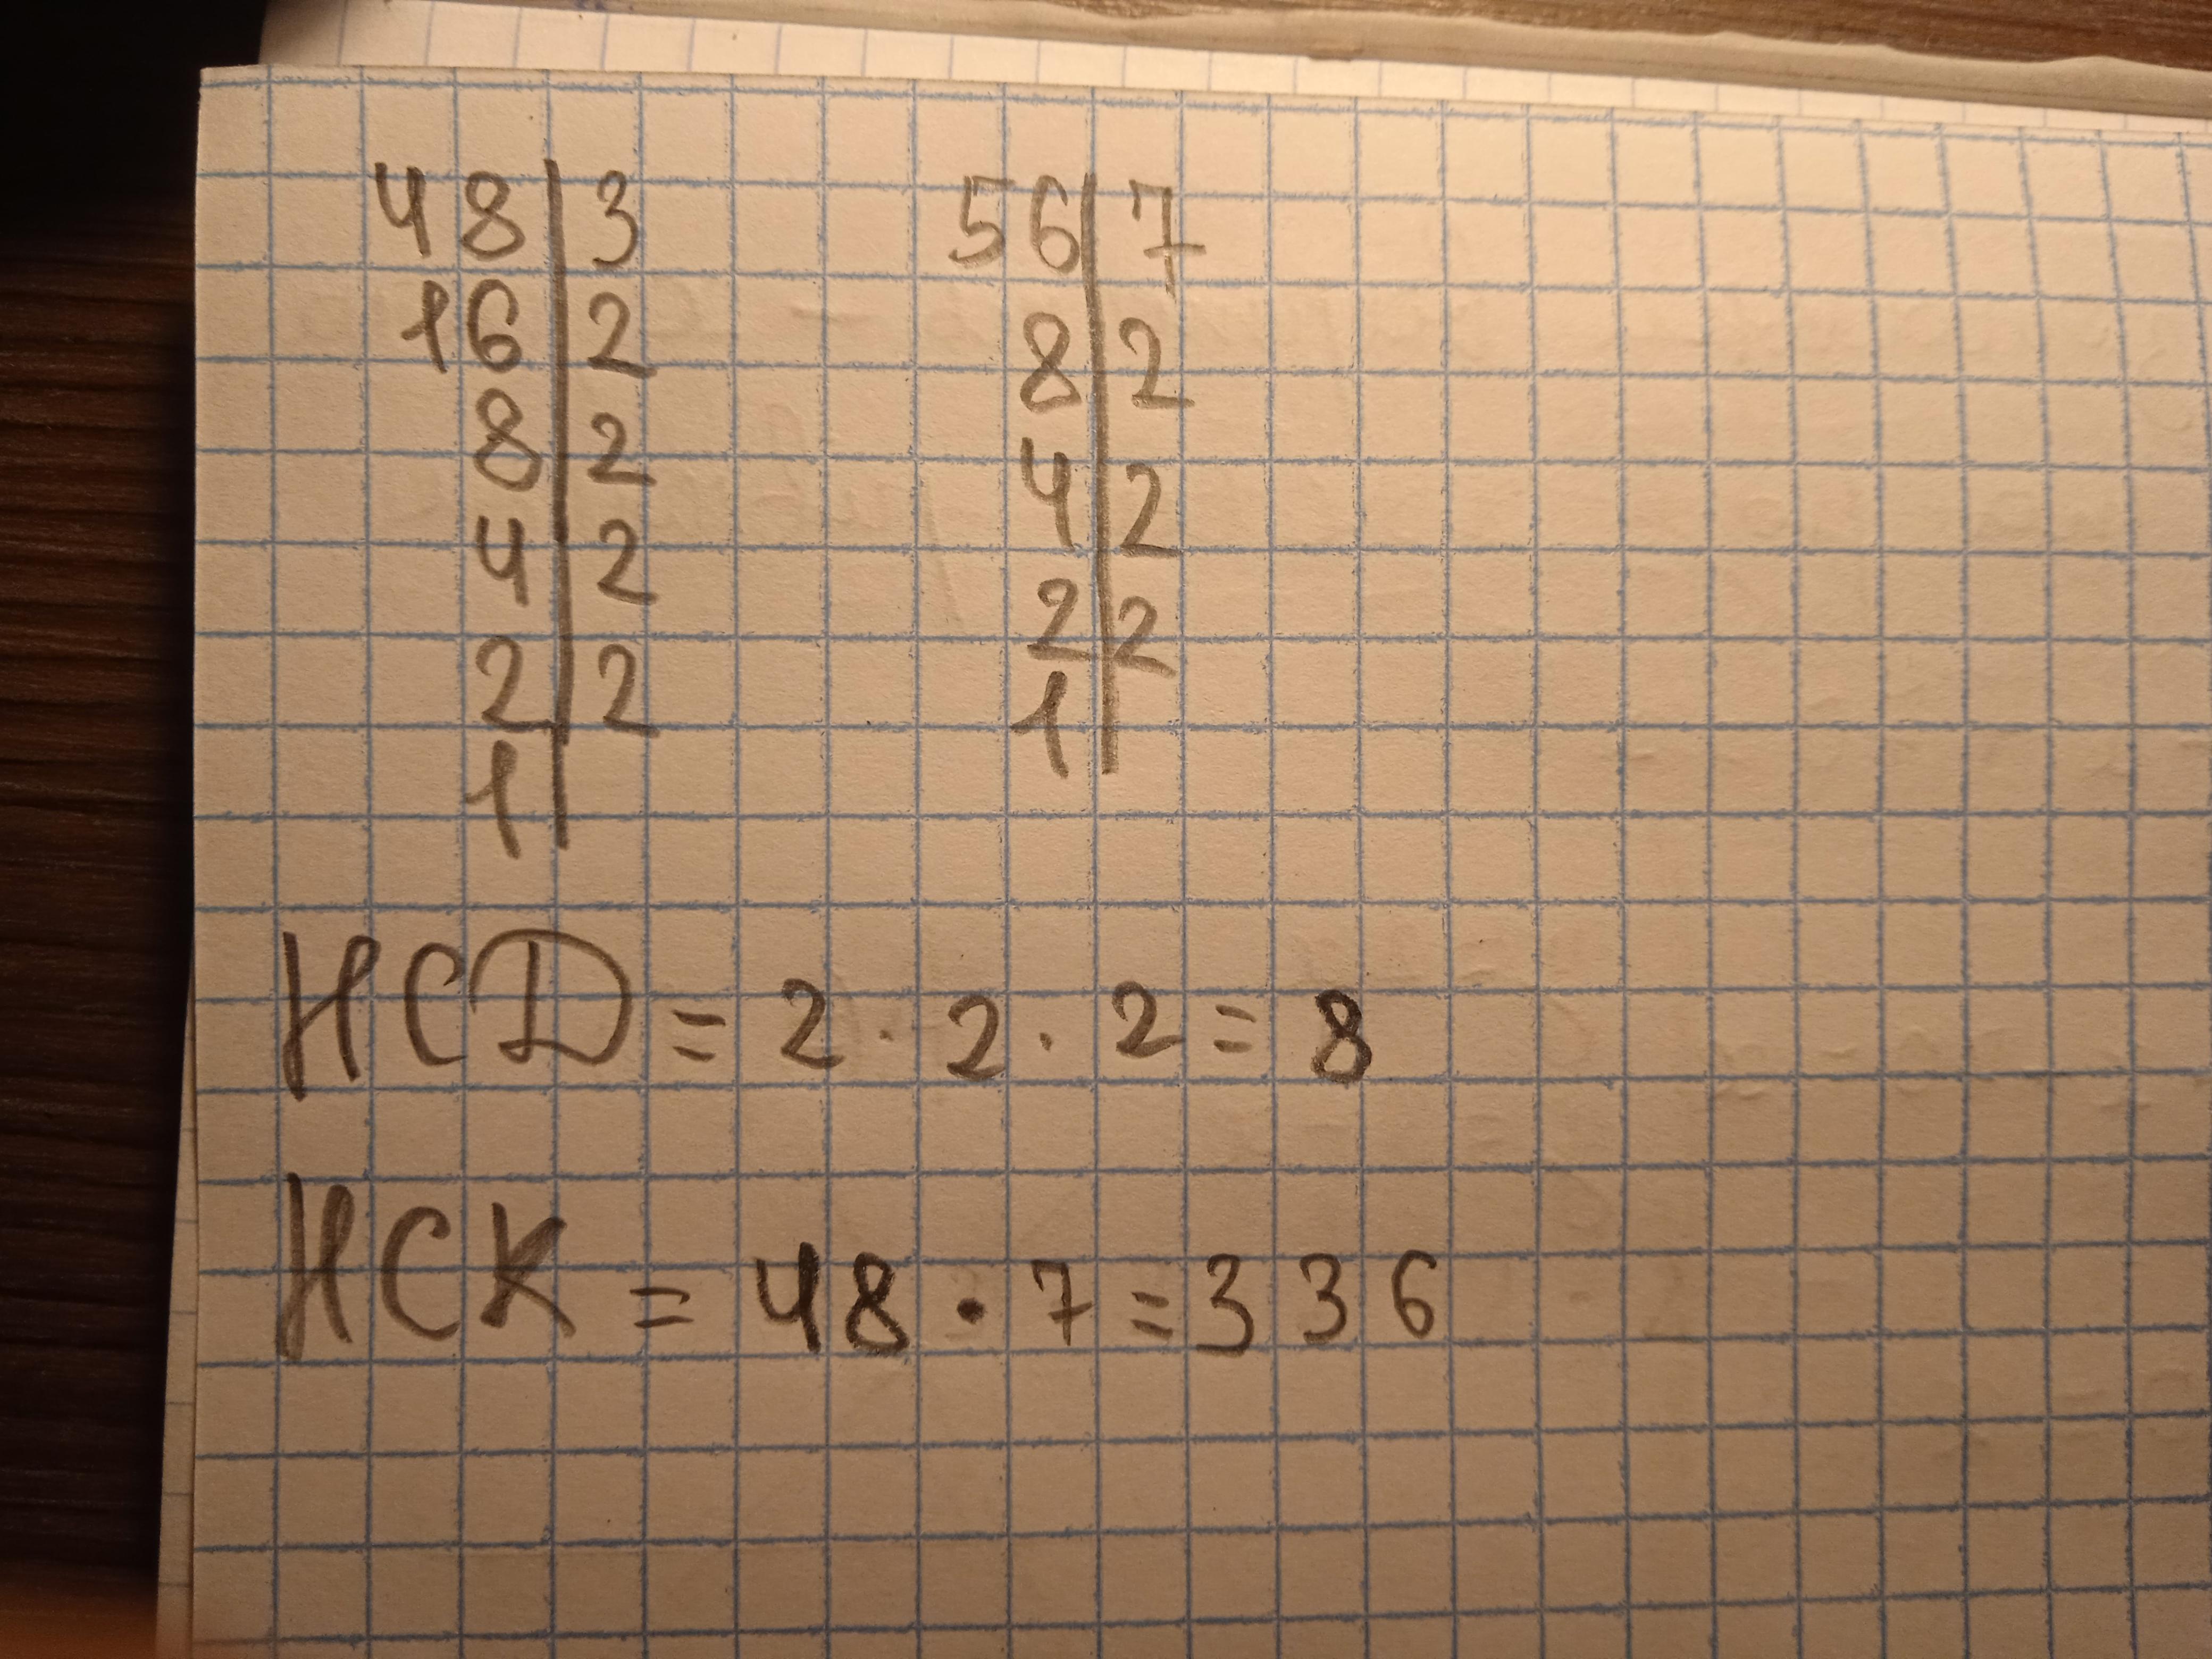 48 | 3
16 | 2
8 | 2
4 | 2
2 | 2
1 |
56 | 7
8 | 2
4 | 2
2 | 2
1 |
НСD = 2 · 2 · 2 = 8
НСК = 48 · 7 = 336